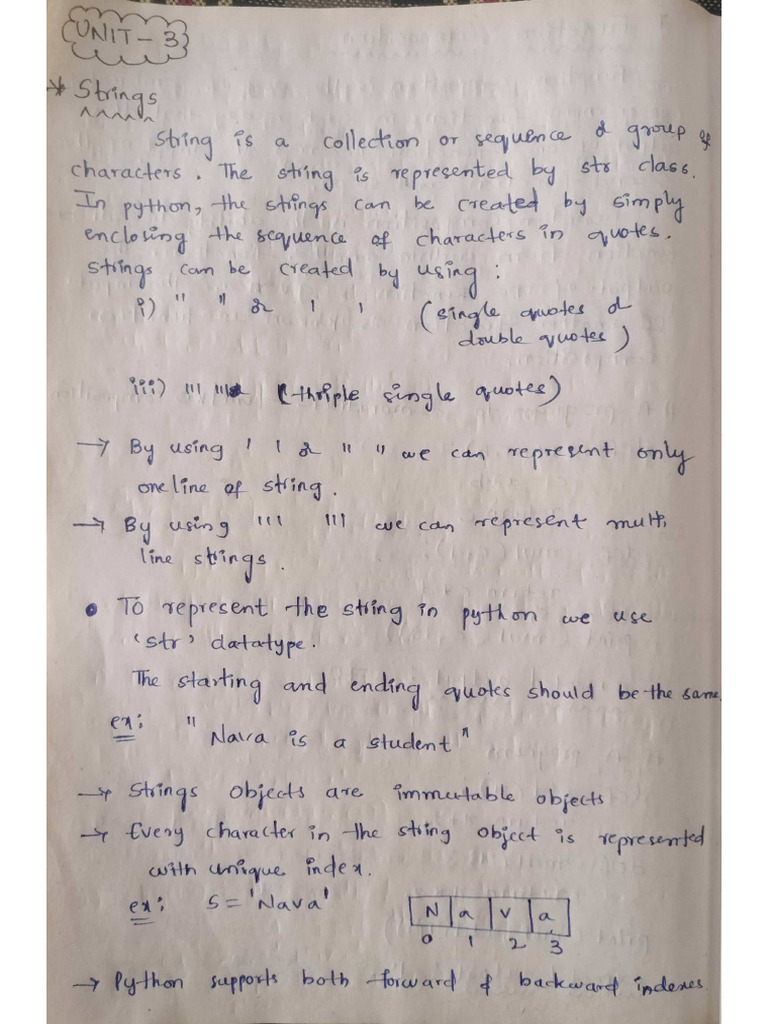 UNIT - 3
* Strings
String is a collection or sequence & group of
characters. The string is represented by str class.
In python, the strings can be created by simply
enclosing the sequence of characters in quotes.
Strings can be created by using :
i) " " or ' ' (single quotes &
double quotes)
iii) ''' ''' (thriple single quotes)
→ By using ' ' or " " we can represent only
one line of string.
→ By using ''' ''' we can represent multi
line strings.
• To represent the string in python we use
'str' datatype.
The starting and ending quotes should be the same.
ex: "Nava is a student"
→ Strings objects are immutable objects
→ Every character in the string object is represented
with unique index.
ex: S = 'Nava' N a v a
0 1 2 3
→ Python supports both forward & backward indexes.